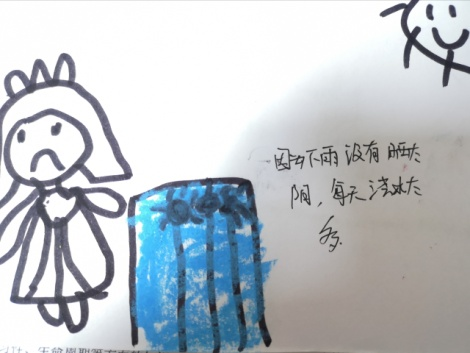 因为下雨没有晒太
阳，每天浇水太
多